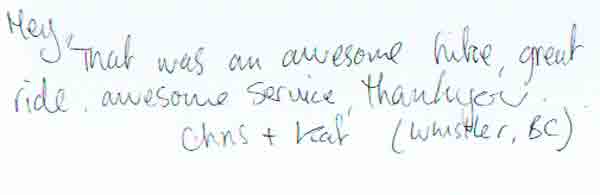 Hey,
That was an awesome hike, great
ride. awesome service, thankyou.
Chris + Kat (Whistler, BC)